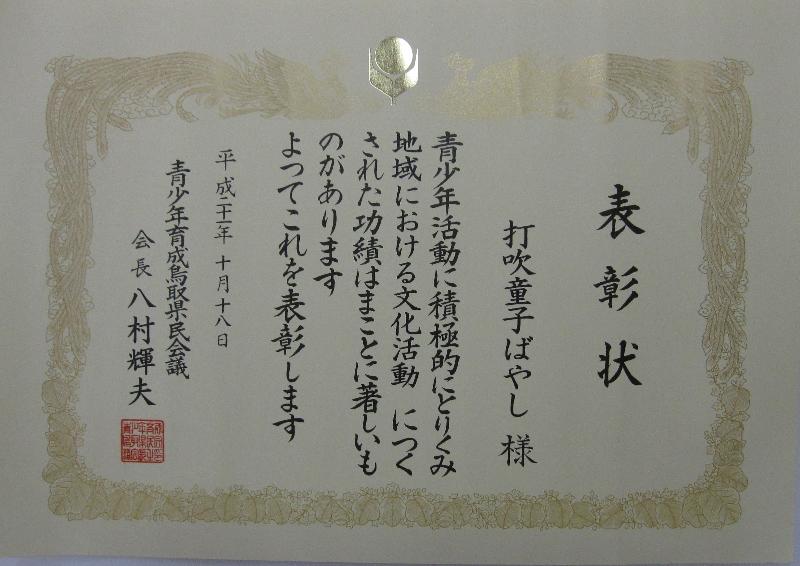 表彰状
打吹童子ばやし 様
青少年活動に積極的にとりくみ
地域における文化活動 につく
された功績はまことに著しいも
のがあります
よってこれを表彰します
平成二十一年 十月十八日
青少年育成鳥取県民会議
会長 八村輝夫